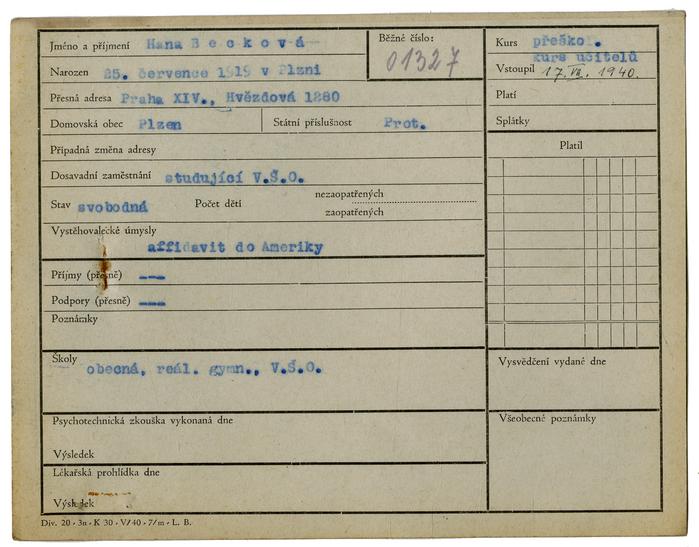 Jméno a příjmení Hana Becková
Běžné číslo:
01327
Kurs přeško .
kurs učitelů
Narozen 25. července 1919 v Plzni
Vstoupil 17. VII. 1940.
Přesná adresa Praha XIV., Hvězdová 1280
Platí
Domovská obec Plzen
Státní příslušnost Prot.
Splátky
Případná změna adresy
Platil
Dosavadní zaměstnání studující V.Š.O.
Stav svobodná
Počet dětí
nezaopatřených
zaopatřených
Vystěhovalecké úmysly
affidavit do Ameriky
Příjmy (přesně) ---
Podpory (přesně) ---
Poznámky
Školy
obecná, reál. gymn., V.Š.O.
Vysvědčení vydané dne
Psychotechnická zkouška vykonaná dne
Všeobecné poznámky
Výsledek
Lékařská prohlídka dne
Výsledek
Div. 20 - 3n - K 30 - V/40 - 7/m - L. B.